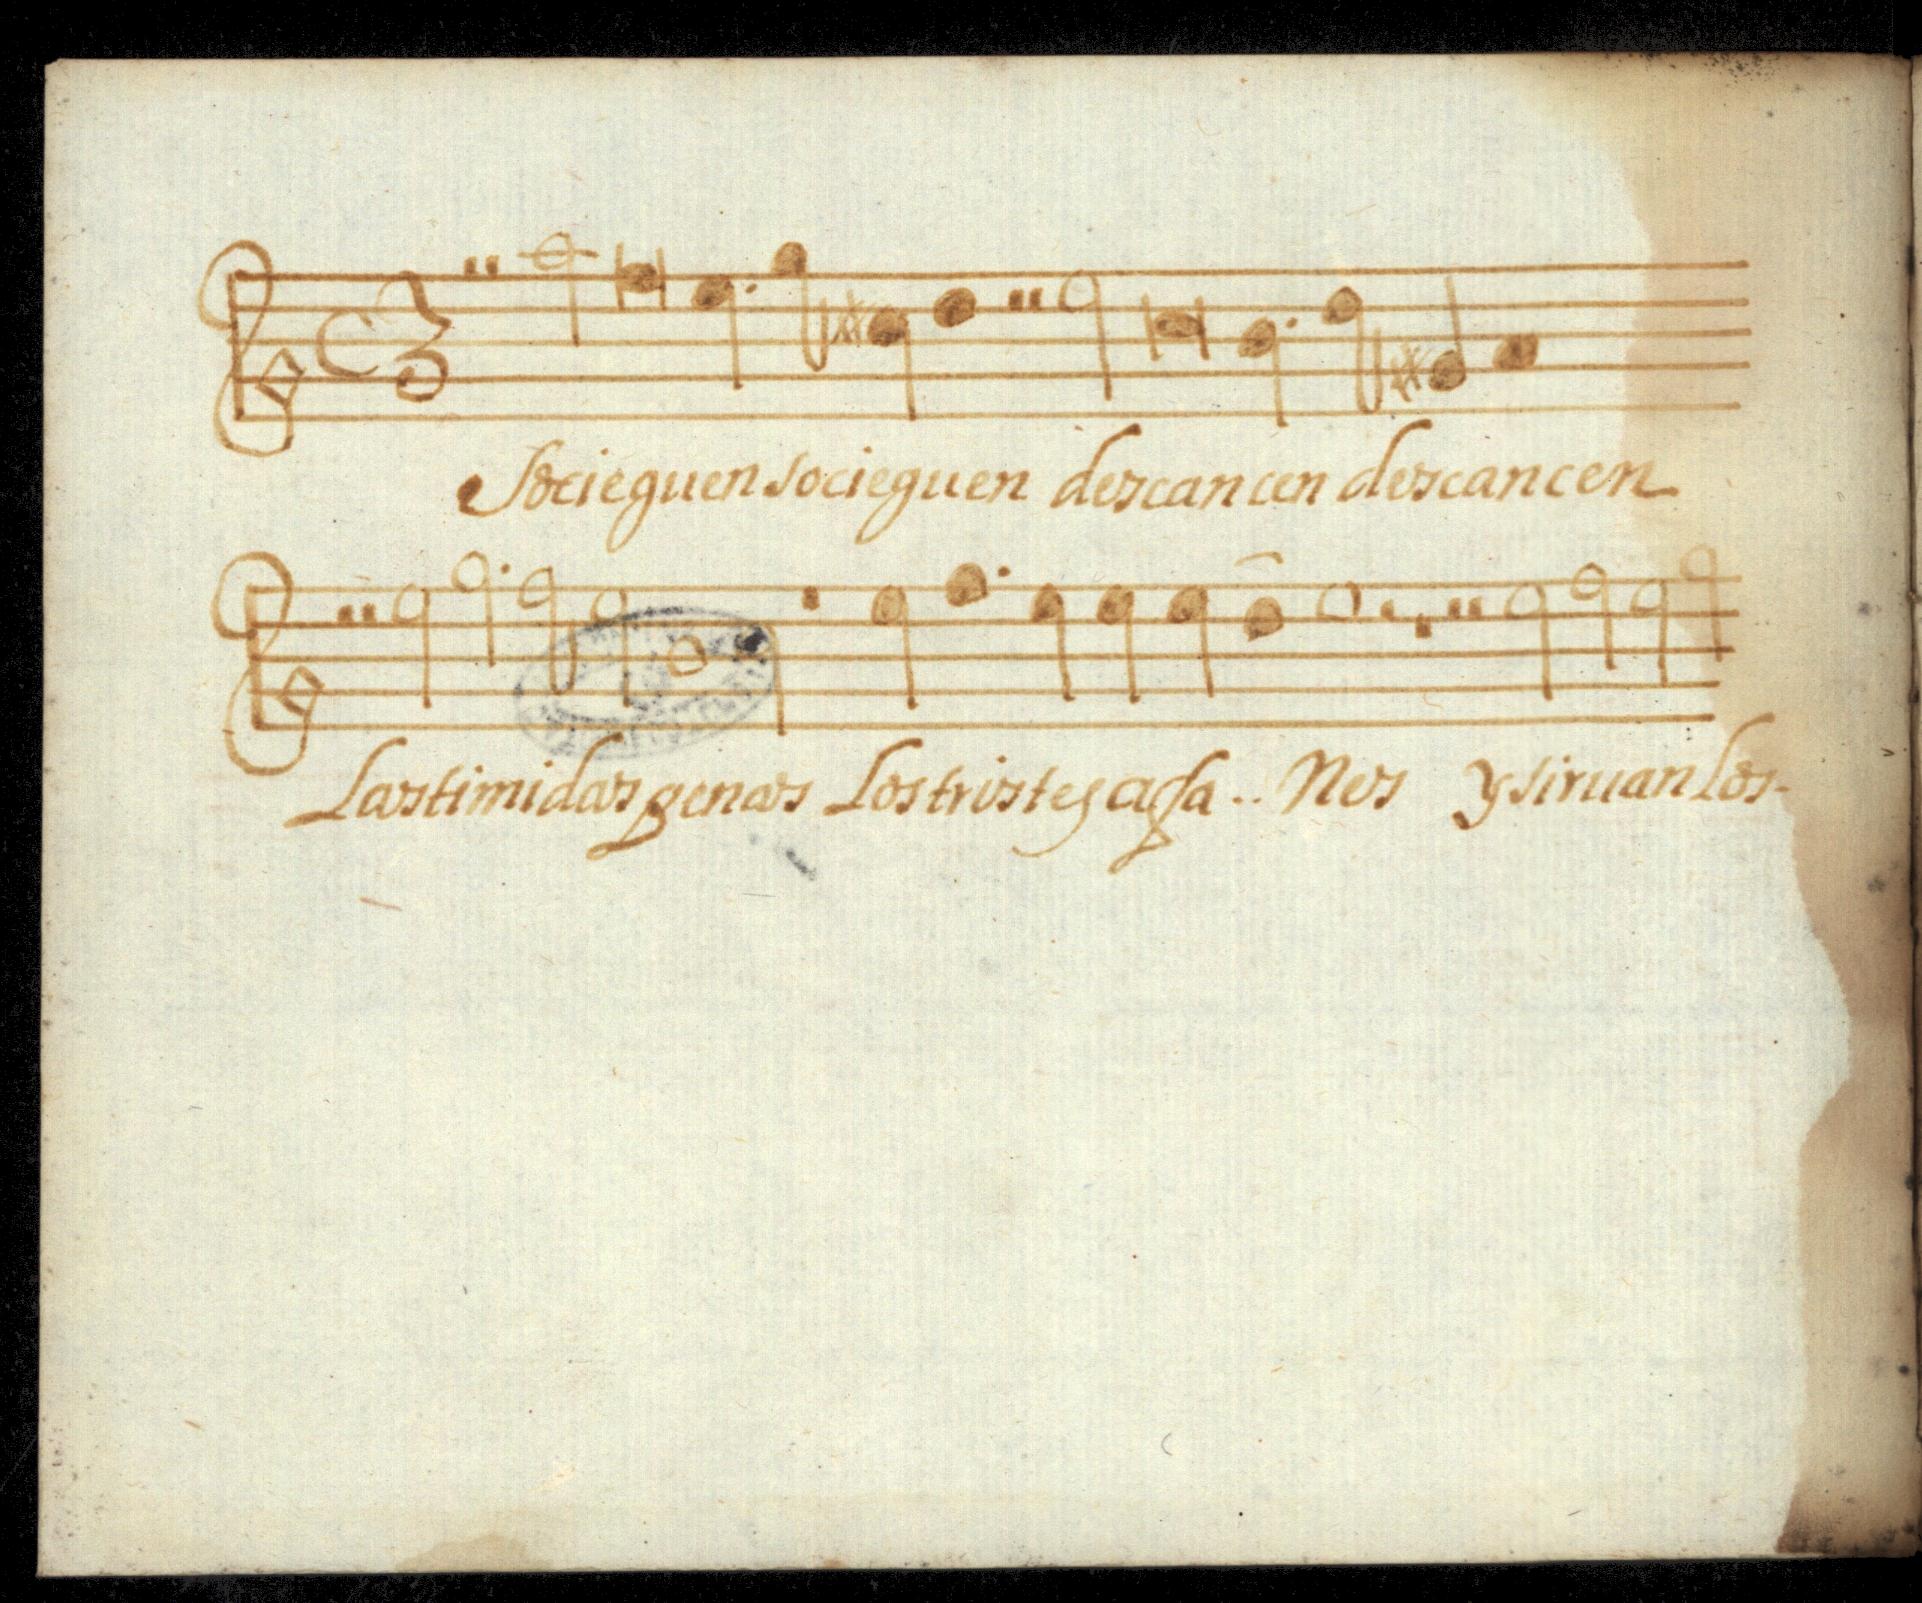 Socieguen socieguen descancen descancen
Las timidas penas Los tristes afa.. Nes y siruan los-